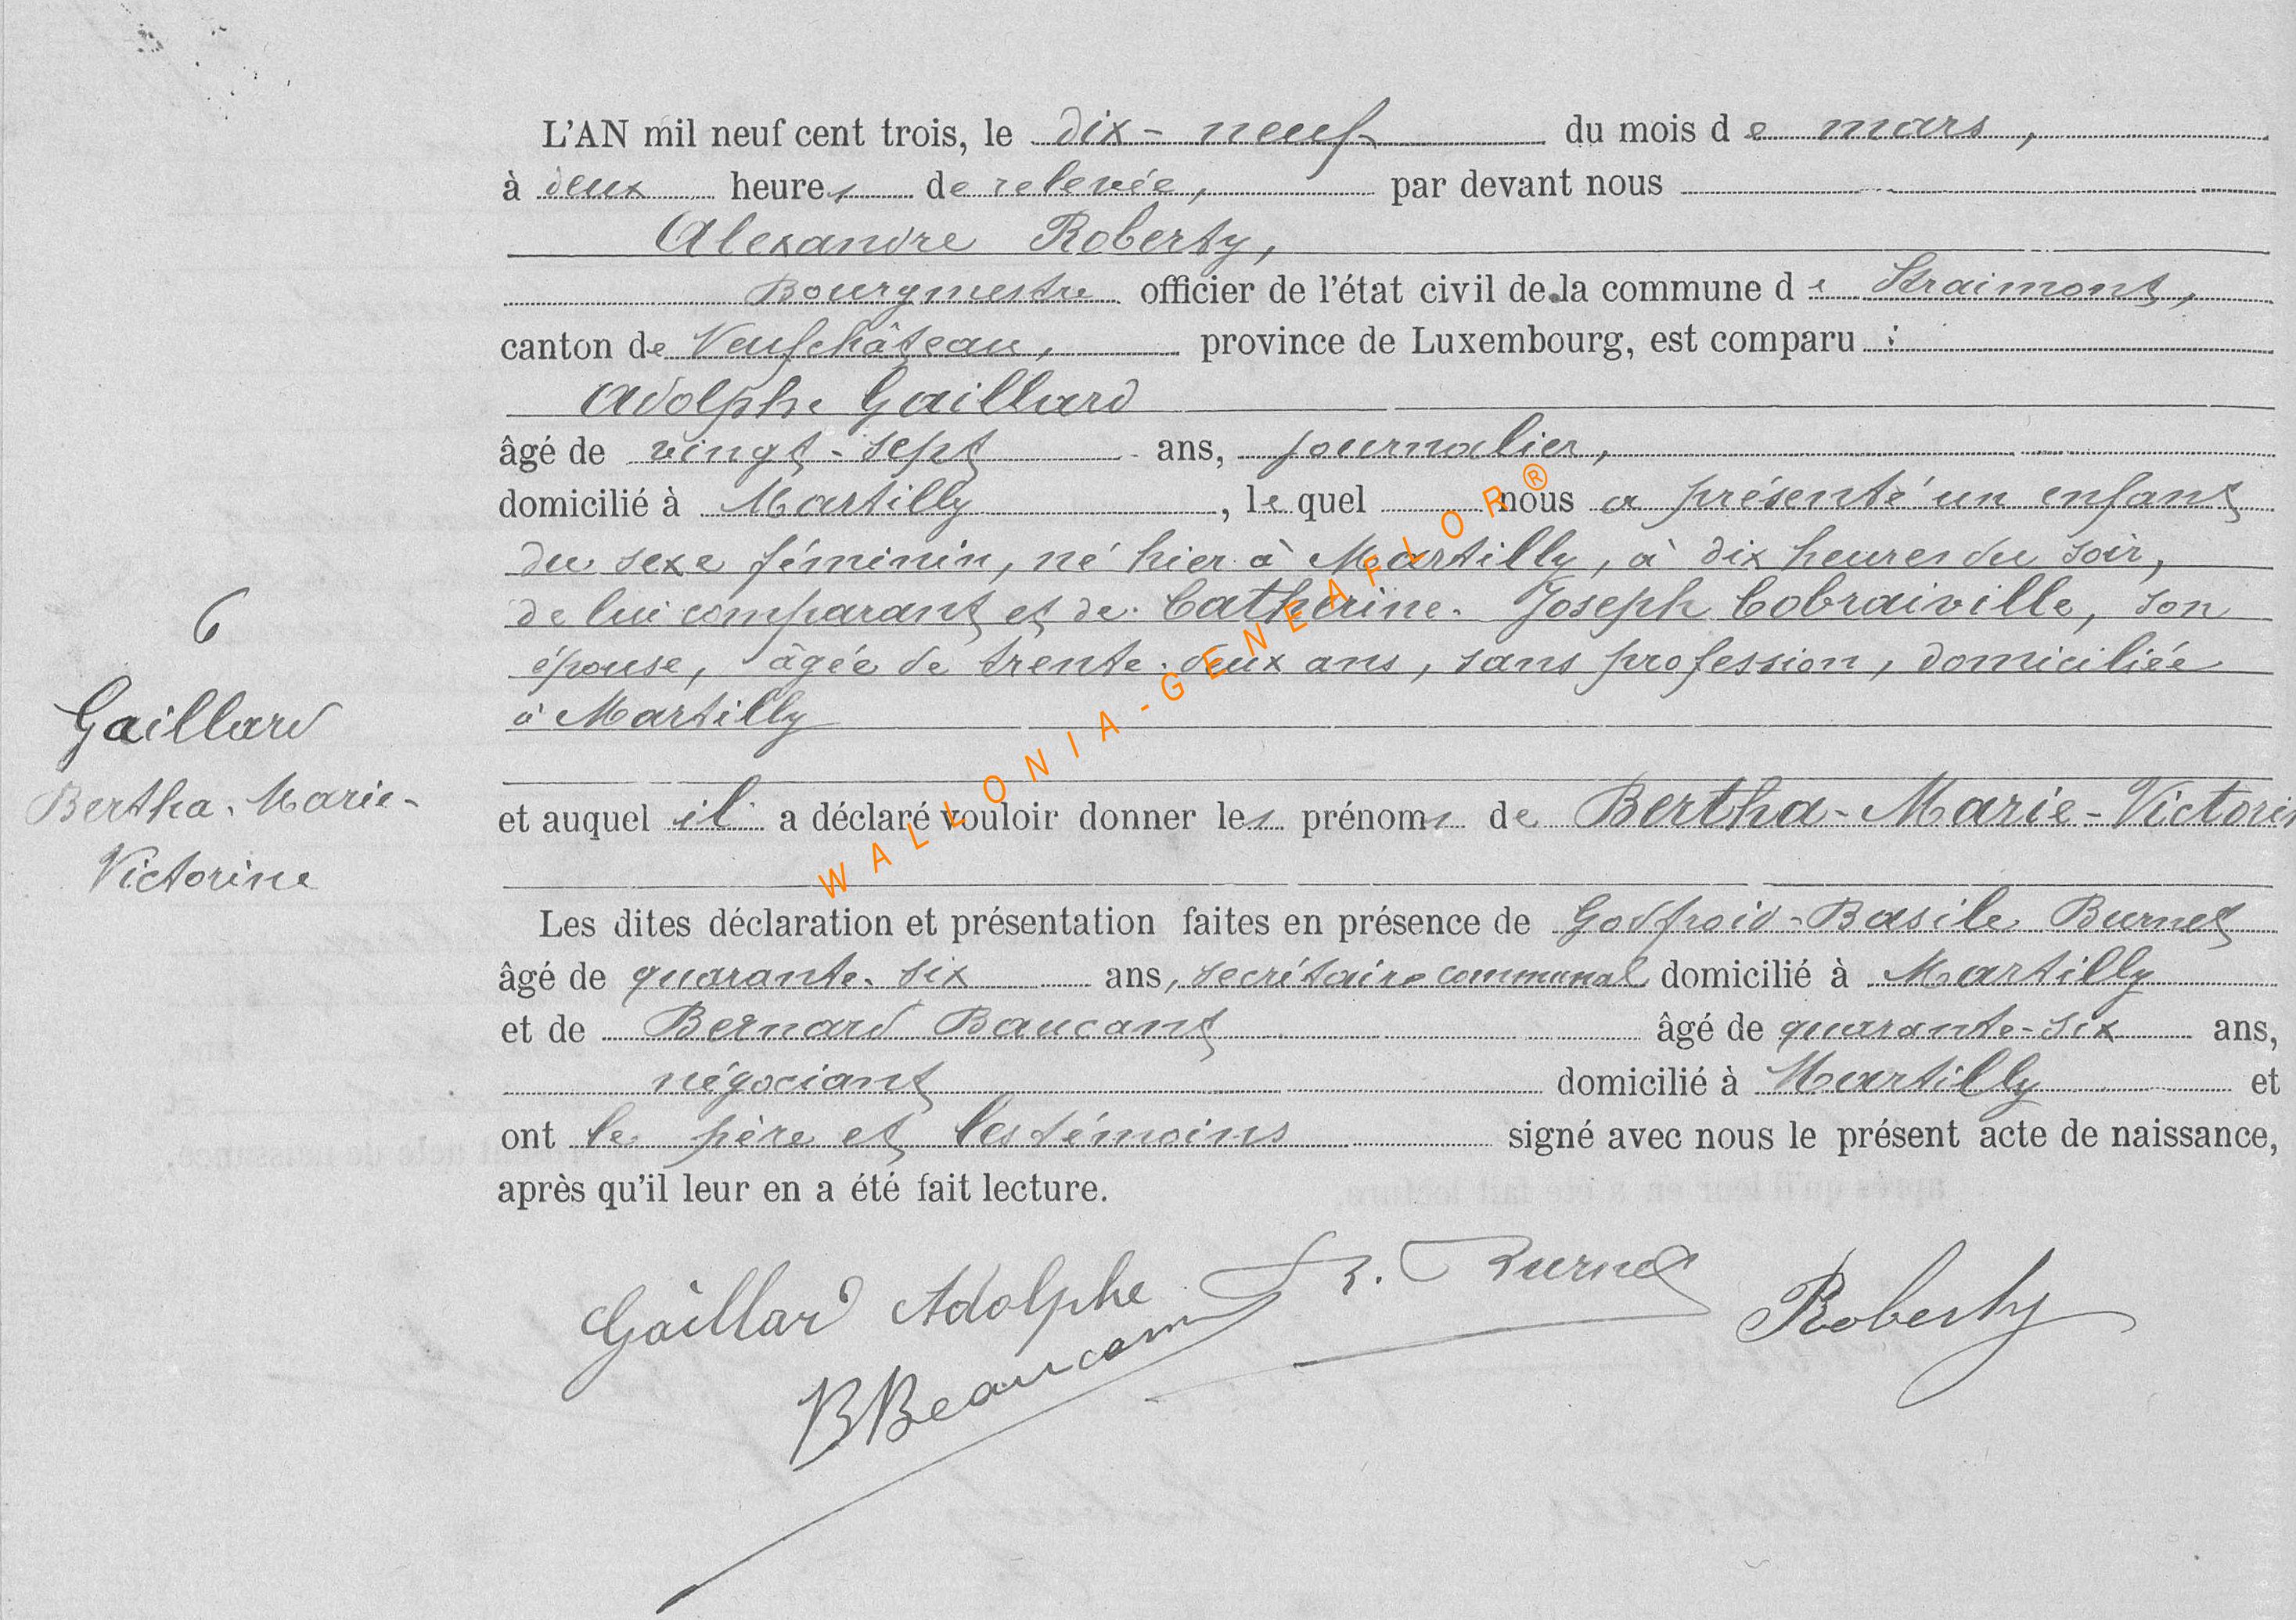 L'AN mil neuf cent trois, le dix-neuf du mois de mars,
à deux heures de relevée, par devant nous
Alexandre Roberty,
Bourgmestre officier de l'état civil de la commune de Straimont,
canton de Neufchâteau, province de Luxembourg, est comparu :
Adolphe Gaillard
âgé de vingt-sept ans, journalier,
domicilié à Martilly, lequel nous a présenté un enfant
du sexe féminin, né hier à Martilly, à dix heures du soir,
de lui comparant et de Catherine-Joseph Cobraiville, son
épouse, âgée de trente-deux ans, sans profession, domiciliée
à Martilly
et auquel il a déclaré vouloir donner les prénoms de Bertha-Marie-Victorin
Les dites déclaration et présentation faites en présence de Godfroid-Basile Burnet
âgé de quarante-six ans, secrétaire communal domicilié à Martilly
et de Bernard Baucant âgé de quarante-six ans,
négociant domicilié à Martilly et
ont le père et les témoins signé avec nous le présent acte de naissance,
après qu'il leur en a été fait lecture.
6
Gaillard
Bertha-Marie-
Victorine
Gaillard Adolphe Burnet Roberty
B Beaucant
WALLONIA-GENEAFLOR®